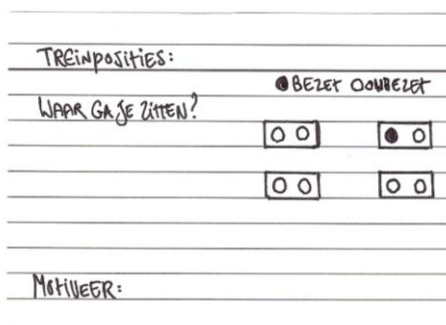 TREINPOSITIES:
● BEZET O ONBEZET
WAAR GA JE ZITTEN?
MOTIVEER: